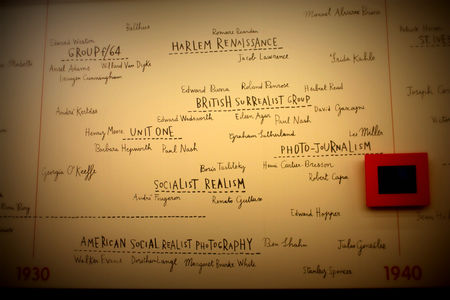 Balthus
Romare Bearden
Manuel Alvarez Bravo
Edward Weston
HARLEM RENAISSANCE
GROUP f/64
Jacob Lawrence
Frida Kahlo
Ansel Adams Willard Van Dyke
Imogen Cunningham
Edward Burra Roland Penrose Herbert Read
BRITISH SURREALIST GROUP
André Kertész
David Gascoyne
Edward Wadsworth Eileen Agar Paul Nash
Henry Moore UNIT ONE
Graham Sutherland
Lee Miller
Barbara Hepworth Paul Nash
PHOTO-JOURNALISM
Georgia O'Keeffe
Boris Taslitzky
Henri Cartier-Bresson
Robert Capa
SOCIALIST REALISM
André Fougeron
Renato Guttuso
Edward Hopper
AMERICAN SOCIAL REALIST PHOTOGRAPHY
Ben Shahn
Julio González
Walker Evans Dorothea Lange Margaret Bourke White
Stanley Spencer
1930
1940